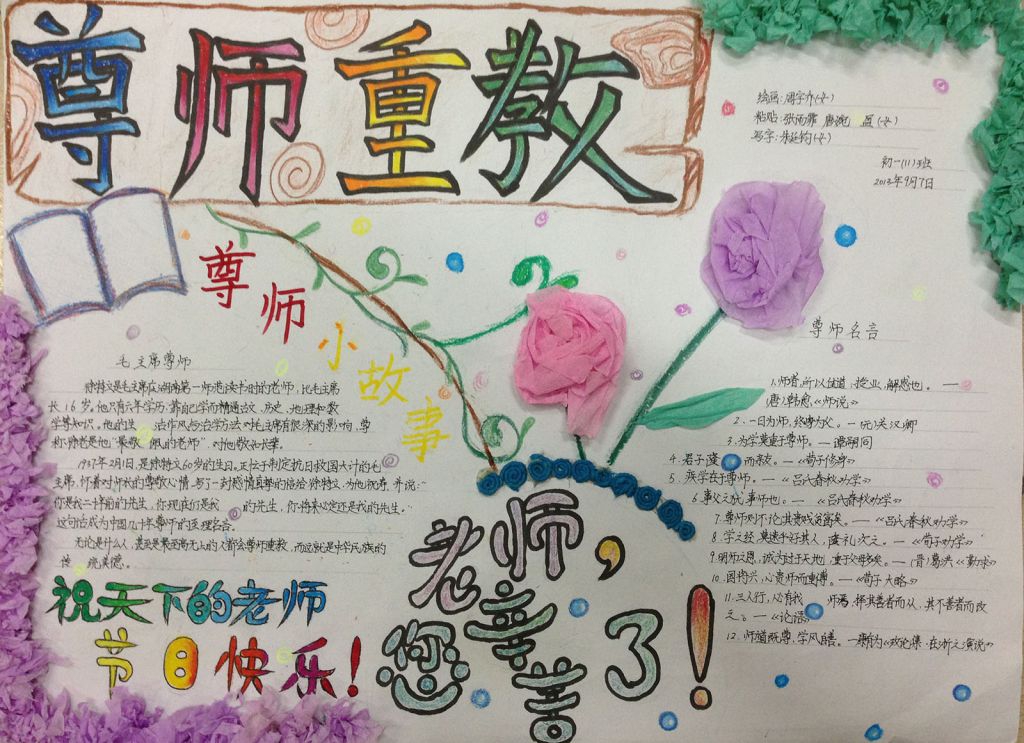 尊师重教
绘画:周宇亦(女)
粘贴:张雨霏 唐婉 (女)
写字:朱延钧(女)
初一(11)班
2013年9月7日
尊师小故事
毛主席尊师
徐特立是毛主席在湖南第一师范读书时的老师,比毛主席
长16岁。他只有六年学历,靠自己学而精通古文、历史、地理和数
学等知识。他的生 治作风与治学方法对毛主席有很深的影响,尊
称徐老是他“最敬 佩的老师”,对他敬礼大事。
1937年2月1日,是徐特立60岁的生日。正忙于制定抗日救国大计的毛
主席,怀着对师长的尊敬心情,写了一封感情真挚的信给徐特立,为他祝寿,并说:“
你是我二十年前的先生,你现在仍是我 的先生,你将来必定还是我的先生。”
这句话成为中国几十年尊师的至理名言。
无论是什么人,甚至是最至高无上的人都会尊师重教,而这就是中华民族的
传 统美德。
祝天下的老师
节日快乐!
老师,
您辛苦了!
尊师名言
1.师者,所以传道、授业、解惑也。——
(唐)韩愈《师说》
2.一日为师,终身为父。——元关汉卿
3.为学莫重于尊师。——谭嗣同
4.君子隆 而亲友。——《荀子修身》
5.疾学在于尊师。——《吕氏春秋劝学》
6.事父之犹事师也。——《吕氏春秋劝学》
7.尊师则不论其贵贱贫富矣。——《吕氏春秋劝学》
8.学之经,莫速乎好其人,隆礼次之。——《荀子劝学》
9.明师之恩,诚为过于天地,重于父母多矣。——(晋)葛洪《勤求》
10.国将兴,心贵师而重傅。——《荀子大略》
11.三人行,必有我 师焉,择其善者而从,其不善者而改
之。——《论语》
12.师道既尊,学风自善。——康有为《政论集·在浙之演说》